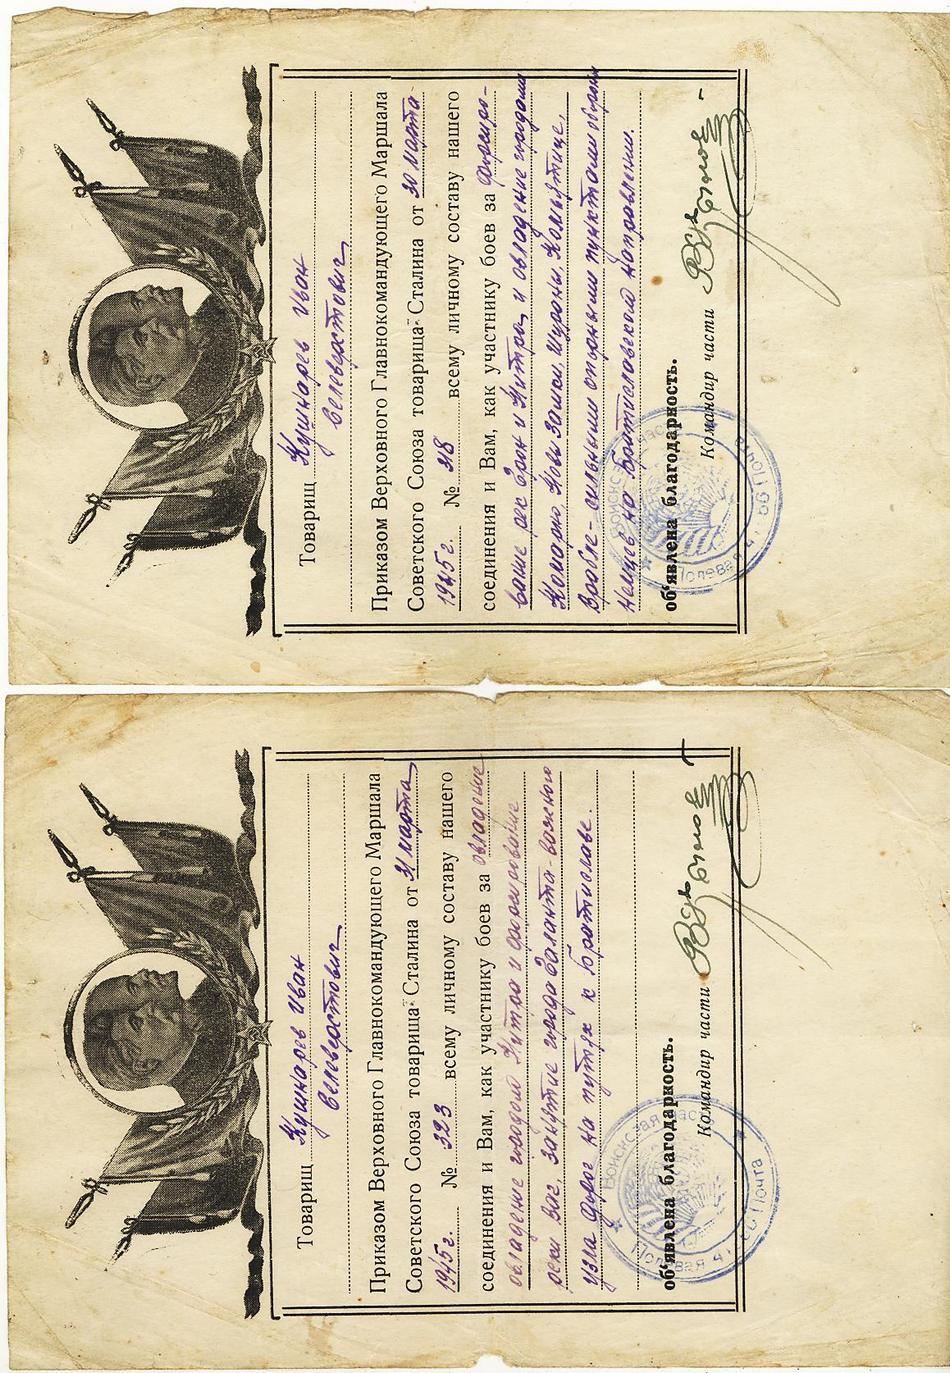 Товарищ Кушнарев Иван
Селеверстович
Приказом Верховного Главнокомандующего Маршала
Советского Союза товарища Сталина от 30 марта
1945 г. № 318 всему личному составу нашего
соединения и Вам, как участнику боев за форсиро-
вание рек Грон и Нитра, и овладение городами
Комарно, Нови Замки, Шураны, Комьятице,
Врабле - сильными опорными пунктами обороны
немцев на братиславском направлении.
об'явлена благодарность.
Командир части
Полевая Почта
Товарищ Кушнарев Иван
Селеверстович
Приказом Верховного Главнокомандующего Маршала
Советского Союза товарища Сталина от 31 марта
1945 г. № 323 всему личному составу нашего
соединения и Вам, как участнику боев за овладение
овладение городом Нитра и форсирование
реки Ваг, занятие города Галанта - важного
узла дорог на путях к Братиславе.
об'явлена благодарность.
Командир части
Войсковая часть
Полевая Почта